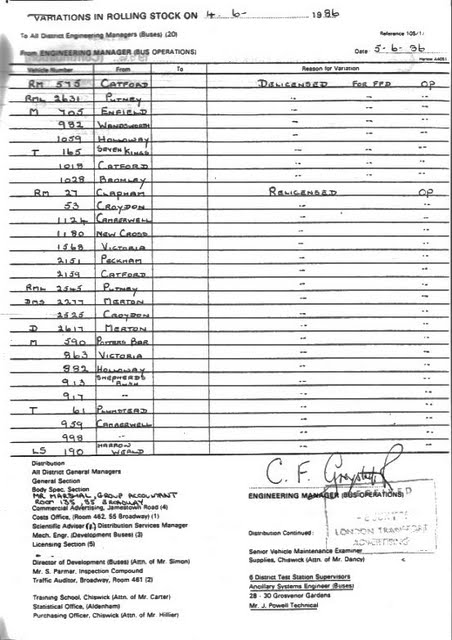 VARIATIONS IN ROLLING STOCK ON 4-6- 1986
To All District Engineering Managers (Buses) (20)
Reference 105/1/
From ENGINEERING MANAGER (BUS OPERATIONS)
Date 5-6-86
Vehicle Number From To Reason for Variation
RM 575 CATFORD DELICENSED FOR FFD OP
RML 2631 PUTNEY " " "
M 705 ENFIELD " " "
982 WANDSWORTH " " "
1059 HOLLOWAY " " "
T 165 SEVEN KINGS " " "
1018 CATFORD " " "
1028 BROMLEY " " "
RM 27 CLAPHAM RELICENSED OP
53 CROYDON " "
1124 CAMBERWELL " "
1180 NEW CROSS " "
1568 VICTORIA " "
2151 PECKHAM " "
2159 CATFORD " "
RML 2545 PUTNEY " "
DMS 2277 MERTON " "
2525 CROYDON " "
D 2617 MERTON " "
M 590 POTTERS BAR " "
863 VICTORIA " "
882 HOLLOWAY " "
913 SHEPHERDS BUSH " "
917 " " "
T 61 PLUMSTEAD " "
959 CAMBERWELL " "
998 " " "
LS 190 HARROW WEALD " "
Distribution
All District General Managers
General Section
Body Spec. Section
MR MARSHAL, GROUP ACCOUNTANT
ROOM 135, 55 BROADWAY
Commercial Advertising, Jamestown Road (4)
Costs Office, (Room 462, 55 Broadway) (1)
Scientific Adviser Distribution Services Manager
Mech. Engr. (Development Buses) (3)
Licensing Section (5)
Director of Development (Buses) (Attn. of Mr. Simon)
Mr. S. Parmar, Inspection Compound
Traffic Auditor, Broadway, Room 461 (2)
Training School, Chiswick (Attn. of Mr. Carter)
Statistical Office, (Aldenham)
Purchasing Officer, Chiswick (Attn. of Mr. Hillier)
C. F.
ENGINEERING MANAGER (BUS OPERATIONS)
LONDON TRANSPORT
ADVERTISING
Distribution Continued:
Senior Vehicle Maintenance Examiner
Supplies, Chiswick (Attn. of Mr. Dancy)
6 District Test Station Supervisors
Ancillary Systems Engineer (Buses)
28 - 30 Grosvenor Gardens
Mr. J. Powell Technical